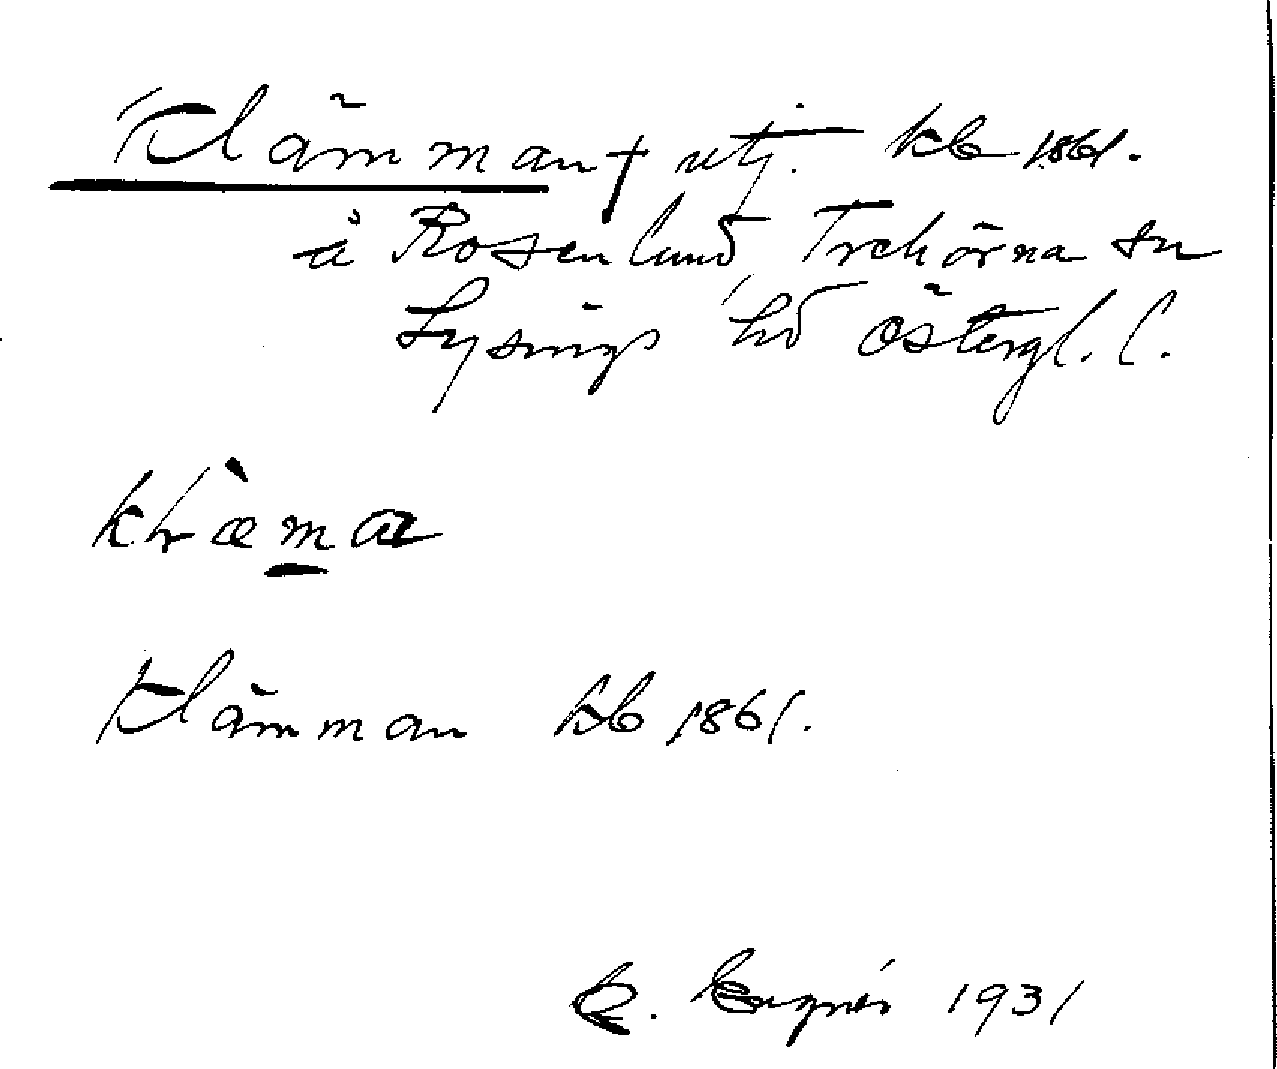 Klämman † utj. kb 1861.
å Rosenlund, Trehörna sn
Lysings hd Östergl. l.
klræ̀ma
Klämman kb 1861.
1931